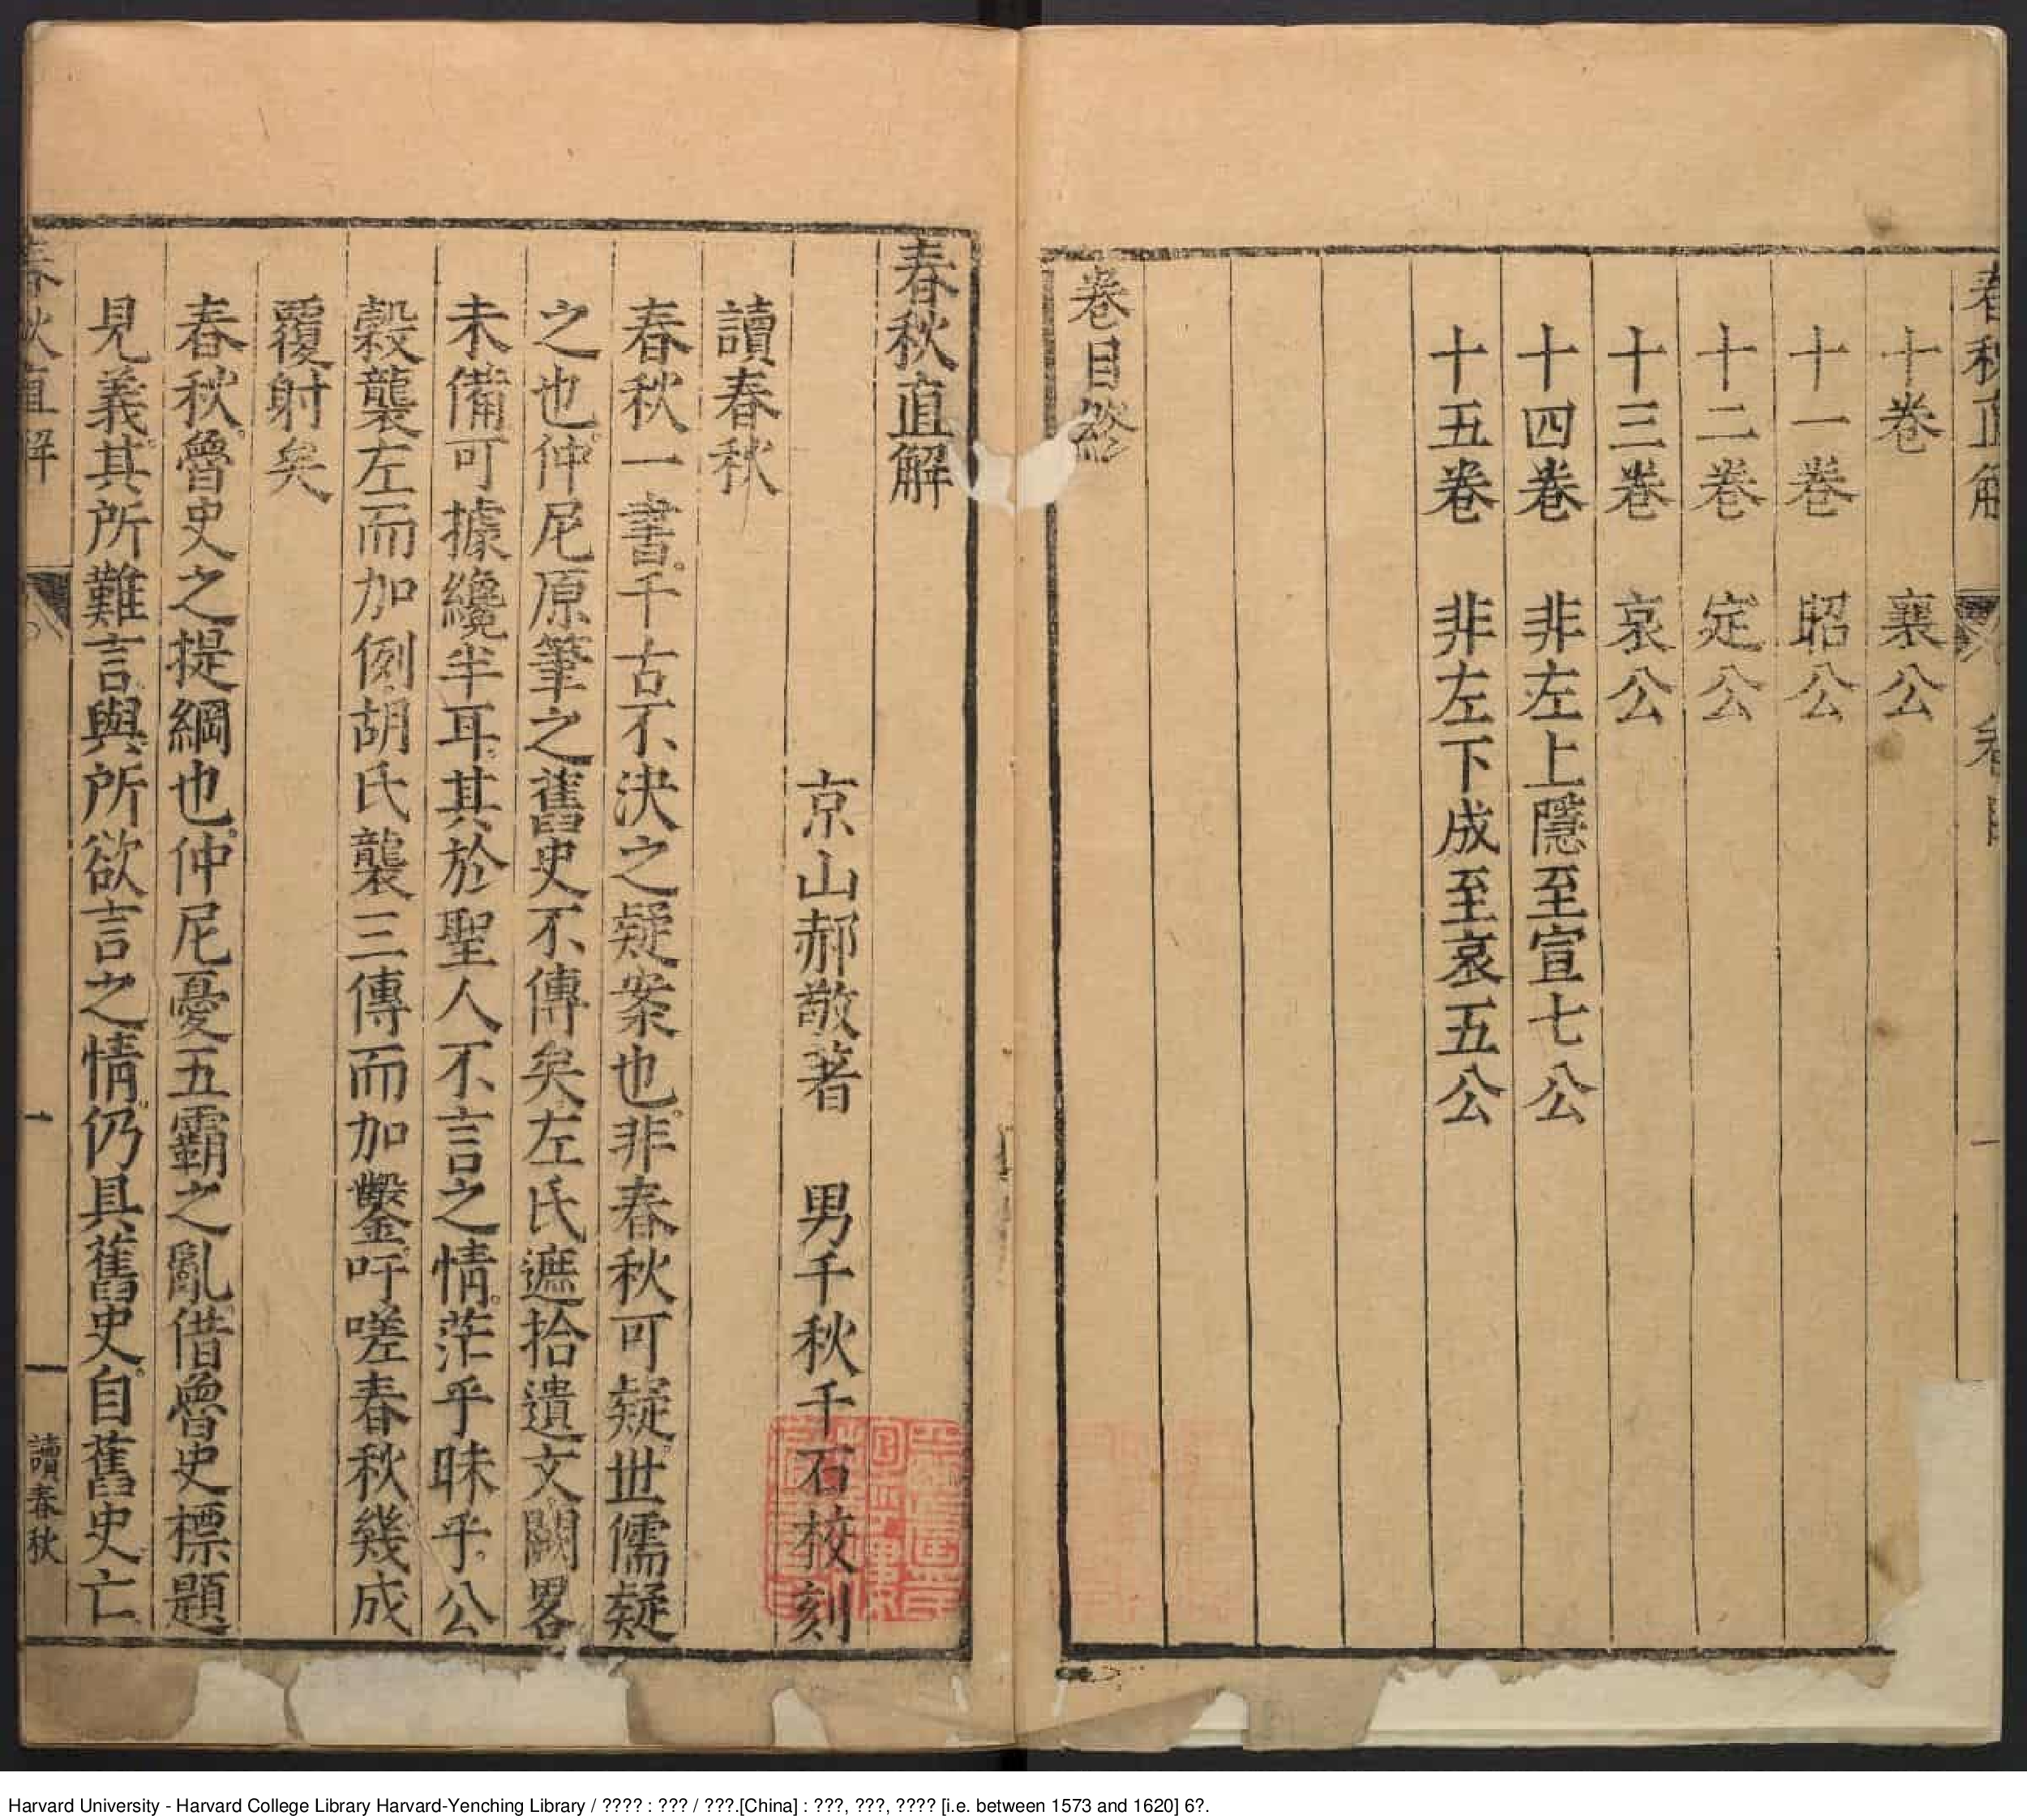 春秋直解 卷目 一
十卷 襄公
十一卷 昭公
十二卷 定公
十三卷 哀公
十四卷 非左上隱至宣七公
十五卷 非左下成至哀五公
卷目終
春秋直解
京山郝敬著 男千秋千石校刻
讀春秋
春秋一書千古不決之疑案也非春秋可疑世儒疑
之也仲尼原筆之舊史不傳矣左氏遮拾遺文闕畧
未備可據纔半耳其於聖人不言之情茫乎昧乎公
穀襲左而加例胡氏襲三傳而加鑿吁嗟春秋幾成
覆射矣
春秋魯史之提綱也仲尼憂五霸之亂借魯史標題
見義其所難言與所欲言之情仍具舊史自舊史亡
春秋直解 一 讀春秋
Harvard University - Harvard College Library Harvard-Yenching Library / ???? : ??? / ???.[China] : ???, ???, ???? [i.e. between 1573 and 1620] 6?.